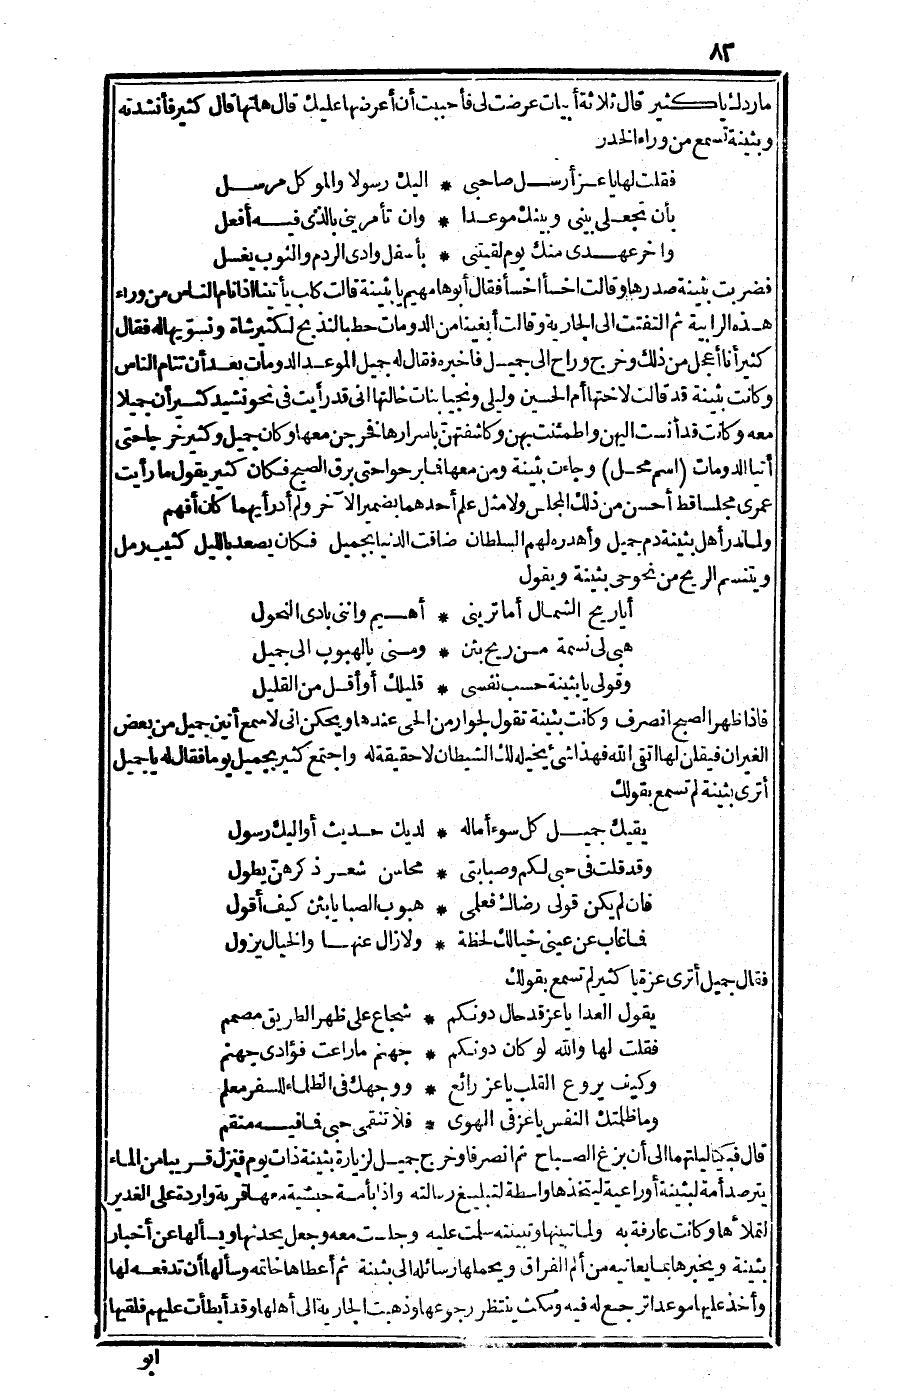 ٨٢
ماردك يا كثير قال ثلاثة أبيات عرضت لى فأحببت أن أعرضها عليك قال هاتها قال كثير فأنشدته
وبثينة تسمع من وراء الخدر
فقلت لها يا عز أرسل صاحبى * اليك رسولا والموكل مرسل
بأن تجعلى بينى وبينك موعدا * وان تأمرينى بالذى فيه أفعل
واخر عهدى منك يوم لقيتنى * بأسفل وادى الردم والثوب يغسل
فضربت بثينة صدرها وقالت اخسأ اخسأ فقال أبوها مهيم يا بثينة قالت كلب يأتينا اذا نام الناس من وراء
هذه الرابية ثم التفتت الى الجارية وقالت أبغينا من الدومات حطبا لنذبح لكثير شاة ونسويها له فقال
كثير أنا أعجل من ذلك وخرج وراح الى جميل فاخبره فقال له جميل الموعد الدومات بعد أن تنام الناس
وكانت بثينة قد قالت لاختها أم الحسين وليلى ونجيا بنات خالتها انى قد رأيت فى نحو نشيد كثير أن جميلا
معه وكانت قد أنست اليهن واطمئنت بهن وكاشفتهن باسرارها فخرجن معها وكان جميل وكثير خرجا حتى
أتيا الدومات (اسم محل) وجاءت بثينة ومن معها فما برحوا حتى برق الصبح فكان كثير يقول ما رأيت
عمرى مجلسا قط أحسن من ذلك المجلس ولا مثل علم أحدهما بضمير الآخر ولم أدر أيهما كان أفهم
ولما نذر أهل بثينة دم جميل وأهدره لهم السلطان ضاقت الدنيا بجميل فكان يصعد بالليل كثيب رمل
ويتنسم الريح من نحو حى بثينة ويقول
أيا ريح الشمال أما ترينى * أهيم واننى بادى النحول
هبى لى نسمة من ريح بثن * ومنى بالهبوب الى جميل
وقولى يا بثينة حسب نفسى * قليلك أو أقل من القليل
فاذا ظهر الصبح انصرف وكانت بثينة تقول لجوار من الحى عندها ويحكن انى لاسمع أنين جميل من بعض
الغيران فيقلن لها اتقى الله فهذا شئ يخيله لك الشيطان لا حقيقة له واجتمع كثير بجميل يوما فقال له يا جميل
أترى بثينة لم تسمع بقولك
يقيك جميل كل سوء أماله * لديك حديث أو اليك رسول
وقد قلت فى حبى لكم وصبابتى * محاسن شعر ذكرهن يطول
فان لم يكن قولى رضاك فعلمى * هبوب الصبا يا بثن كيف أقول
فما غاب عن عينى خيالك لحظة * ولا زال عنها والخيال يزول
فقال جميل أترى عزة يا كثير لم تسمع بقولك
يقول العدا يا عز قد حال دونكم * شجاع على ظهر الطريق مصمم
فقلت لها والله لو كان دونكم * جهنم ما راعت فؤادى جهنم
وكيف يروع القلب يا عز رائع * ووجهك فى الظلماء للسفر معلم
وما ظلمتك النفس يا عز فى الهوى * فلا تنقمى حبى فما فيه منقم
قال فبكيا ليلتهما الى أن بزغ الصباح ثم انصرفا وخرج جميل لزيارة بثينة ذات يوم فنزل قريبا من الماء
يترصد أمة لبثينة أو راعية ليتخذها واسطة لتبليغ رسالته واذا بأمة حبشية معها قربة واردة على الغدير
لتملأها وكانت عارفة به ولما تبينها وتبينته سلمت عليه وجلست معه وجعل يحدثها ويسألها عن أخبار
بثينة ويخبرها بما يعانيه من ألم الفراق ويحملها رسائله الى بثينة ثم أعطاها خاتمه وسألها أن تدفعه لها
وأخذ عليها موعدا ترجع له فيه ومكث ينتظر رجوعها وذهبت الجارية الى أهلها وقد أبطأت عليهم فلقيها
ابو